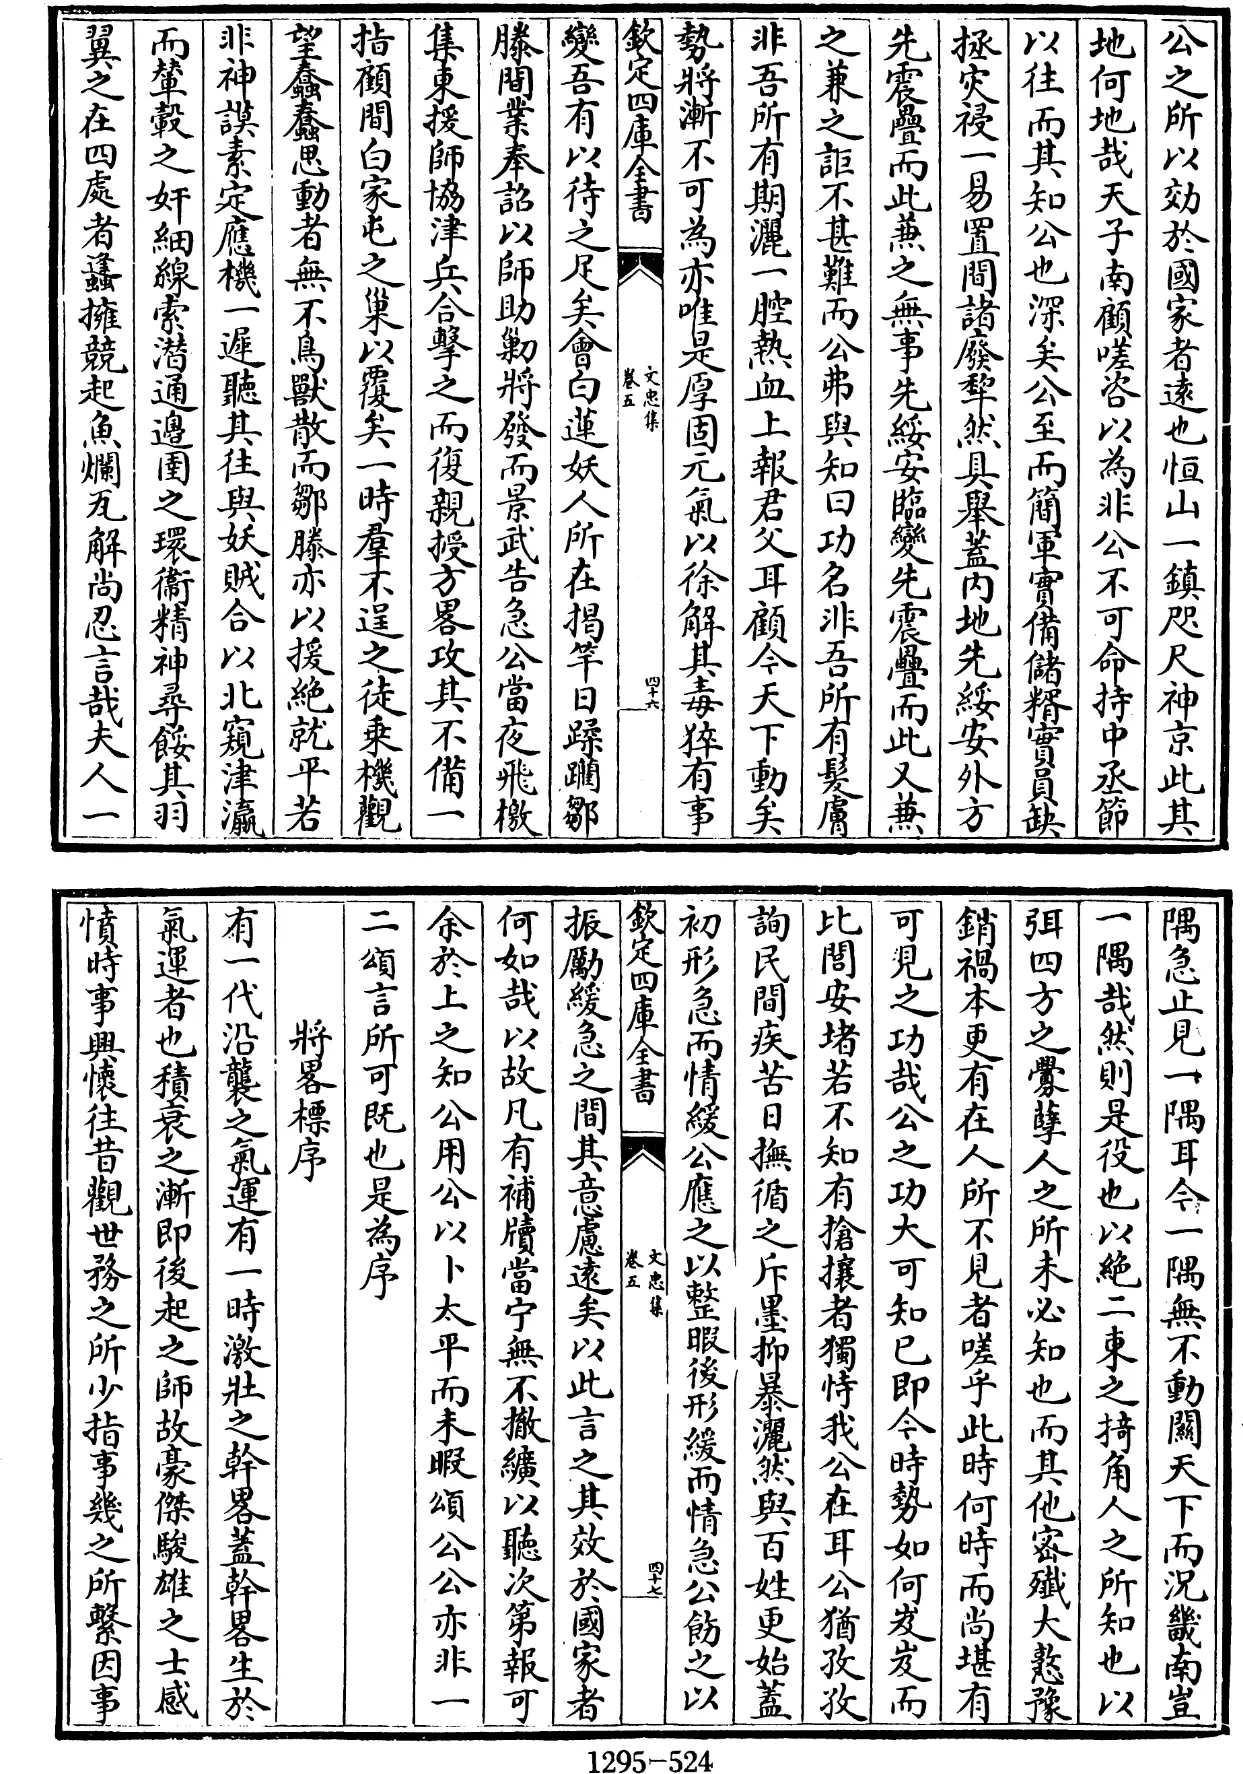 公之所以効於國家者遠也恒山一鎮咫尺神京此其
地何地哉天子南顧嗟咨以為非公不可命持中丞節
以往而其知公也深矣公至而簡軍實備儲糈實員缺
拯灾祲一易置間諸廢犂然具舉蓋内地先綏安外方
先震疊而此兼之無事先綏安臨變先震疊而此又兼
之兼之詎不甚難而公弗與知曰功名非吾所有髮膚
非吾所有期灑一腔熱血上報君父耳顧今天下動矣
勢將漸不可為亦唯是厚固元氣以徐解其毒猝有事
欽定四庫全書
文忠集
卷五
四十六
變吾有以待之足矣會白蓮妖人所在揭竿日蹂躙鄒
滕間業奉詔以師助勦將發而景武告急公當夜飛檄
集東援師協津兵合擊之而復親授方畧攻其不備一
指顧間白家屯之巢以覆矣一時羣不逞之徒乗機觀
望蠢蠢思動者無不鳥獸散而鄒滕亦以援絶就平若
非神謨素定應機一遲聽其往與妖賊合以北窺津瀛
而輦轂之奸細線索潜通邊圉之環衞精神尋餒其羽
翼之在四處者蠭擁競起魚爛瓦解尚忍言哉夫人一
隅急止見一隅耳今一隅無不動關天下而況畿南豈
一隅哉然則是役也以絶二東之掎角人之所知也以
弭四方之釁孽人之所未必知也而其他密殱大憝豫
銷禍本更有在人所不見者嗟乎此時何時而尚堪有
可見之功哉公之功大可知已即今時勢如何岌岌而
比閭安堵若不知有搶攘者獨恃我公在耳公猶孜孜
詢民間疾苦日撫循之斥墨抑暴灑然與百姓更始蓋
初形急而情緩公應之以整暇後形緩而情急公飭之以
欽定四庫全書
文忠集
卷五
四十七
振勵緩急之間其意慮遠矣以此言之其效於國家者
何如哉以故凡有補牘當宁無不撤纊以聽次第報可
余於上之知公用公以卜太平而未暇頌公公亦非一
二頌言所可既也是為序
將畧標序
有一代沿襲之氣運有一時激壯之幹畧蓋幹畧生於
氣運者也積衰之漸即後起之師故豪傑駿雄之士感
憤時事興懷往昔觀世務之所少指事幾之所繫因事
1295-524